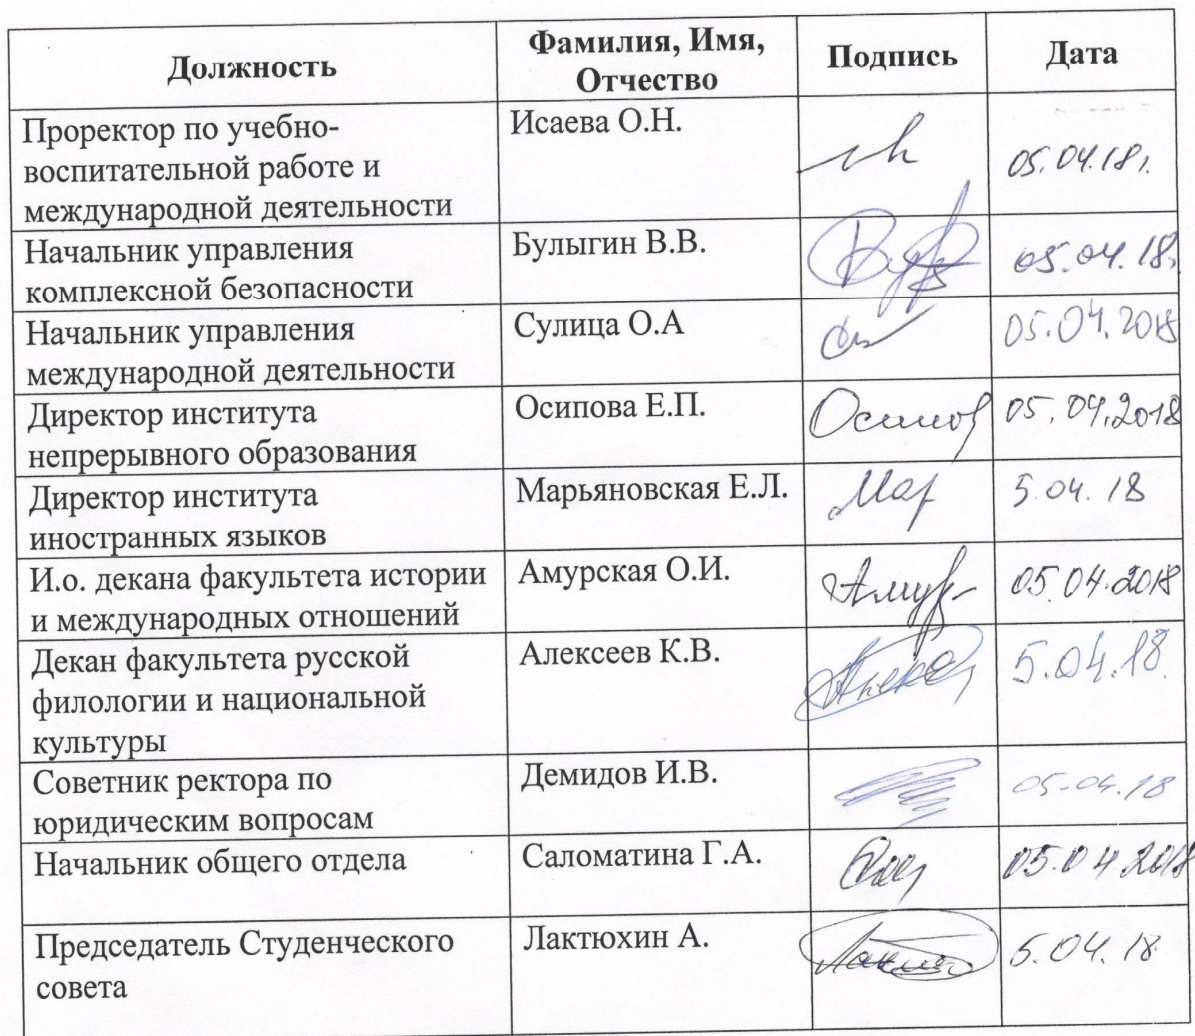 Должность
Фамилия, Имя,
Отчество
Подпись
Дата
Проректор по учебно-
воспитательной работе и
международной деятельности
Исаева О.Н.
05.04.18г.
Начальник управления
комплексной безопасности
Булыгин В.В.
05.04.18.
Начальник управления
международной деятельности
Сулица О.А
05.04.2018
Директор института
непрерывного образования
Осипова Е.П.
05.04.2018
Директор института
иностранных языков
Марьяновская Е.Л.
Мар
5.04.18
И.о. декана факультета истории
и международных отношений
Амурская О.И.
05.04.2018
Декан факультета русской
филологии и национальной
культуры
Алексеев К.В.
5.04.18.
Советник ректора по
юридическим вопросам
Демидов И.В.
05.04.18
Начальник общего отдела
Саломатина Г.А.
05.04 2018
Председатель Студенческого
совета
Лактюхин А.
5.04.18